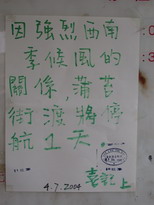 因強烈西南
季候風的
關係，蒲苔
街渡將停
航1天
4.7.2004
上